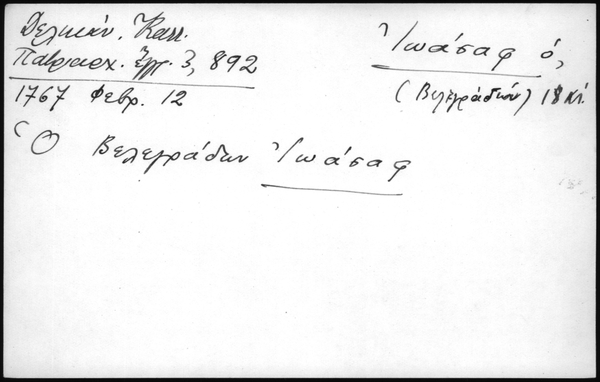 Δελικάν. Καλλ.
Πατριαρχ. Ἔγγρ. 3, 892
1767 Φεβρ. 12
Ἰωάσαφ ὁ,
(Βελεγράδων) 18 αἰ.
Ὁ Βελεγράδων Ἰωάσαφ